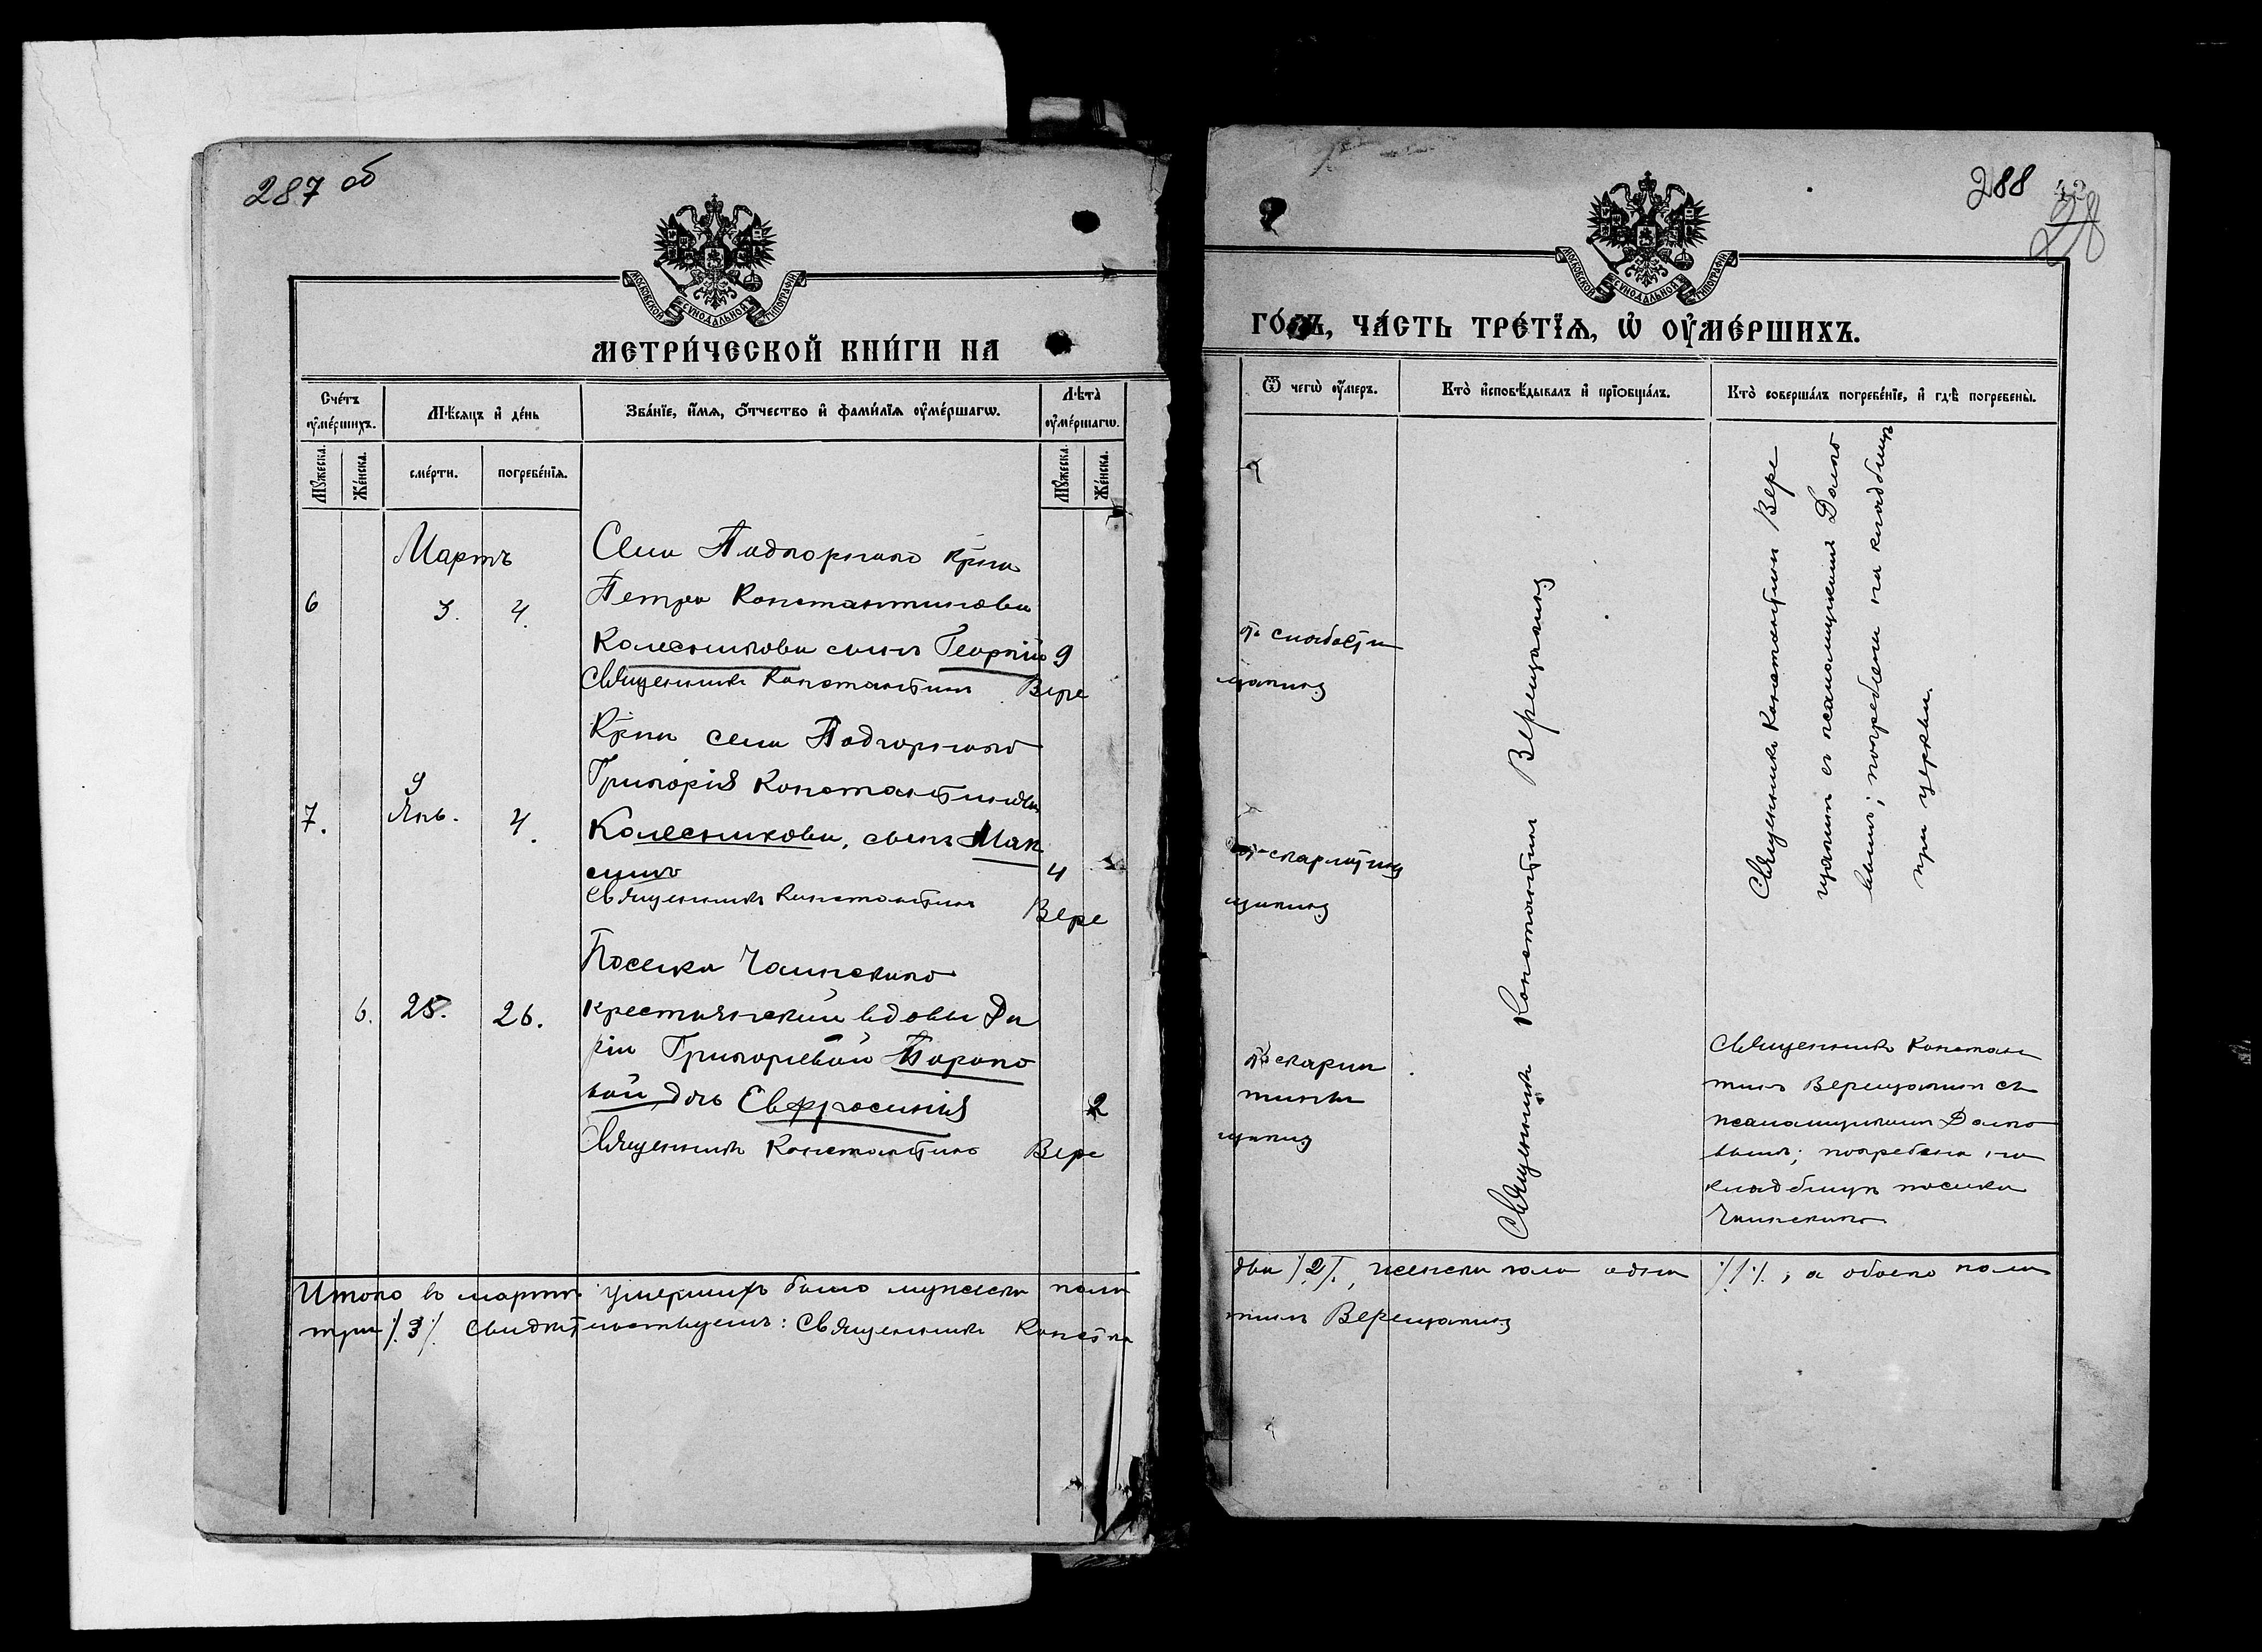 287 об
МОСКОВСКОЙ СѴНОДАЛЬНОЙ ТИПОГРАФІИ
МЕТРИ́ЧЕСКОЙ КНИ́ГИ НА
Сче́тъ ᲂу҆ме́ршихъ.
Мѣ́сяцъ и҆ де́нь
Зва́нїе, и҆́мѧ, ѻ҆́тчество и҆ фами́лїѧ ᲂу҆ме́ршагѡ.
Лѣта̀ ᲂу҆ме́ршагѡ.
Мꙋ́жеска.
Же́нска.
сме́рти.
погребе́нїѧ.
Мꙋ́жеска.
Же́нска.
Мартъ
Села Подгорнаго кр-на
6 3. 4. Петра Константинова
Колесникова сынъ Георгій 9
Священникъ Константинъ Вере
Кр-на села Подгорнаго
9 Григорія Константинова
7. Янв. 4. Колесникова, сынъ Мак
симъ 4
Священникъ Константинъ Вере
Поселка Чаинскаго
6. 25. 26. крестьянской вдовы Да
ріи Григорьевой
вой дочь Евфросинія 2
Священникъ Константинъ Вере
Итого въ мартѣ умершихъ было мужеска пола
три ٪3٪ Свидѣтельствуемъ: Священникъ Конста
288
42
28
МОСКОВСКОЙ СѴНОДАЛЬНОЙ ТИПОГРАФІИ
ГО́ДЪ, ЧА́СТЬ ТРЕ́ТЇѦ, Ѡ҆ ОУ҆МЕ́РШИХЪ.
Ѿ чегѡ̀ ᲂу҆́меръ.
Кто̀ и҆сповѣ́дывалъ и҆ прїѡбща́лъ.
Кто̀ соверша́лъ погребе́нїе, и҆ гдѣ̀ погребены̀.
отъ слабости
щагинъ
отъ скарлатины
щагинъ
отъ скарла
тины
щагинъ
Священникъ Константинъ Верещагинъ
Священникъ Константинъ Вере
щагинъ съ псаломщикомъ Долго
вымъ; погребены на кладбищѣ
при церкви.
Священникъ Констан
тинъ Верещагинъ съ
псаломщикомъ Долго
вымъ; погребена на
кладбищѣ поселка
Чаинскаго
два ٪2٪, женска пола одна ٪1٪, а обоего пола
тинъ Верещагинъ